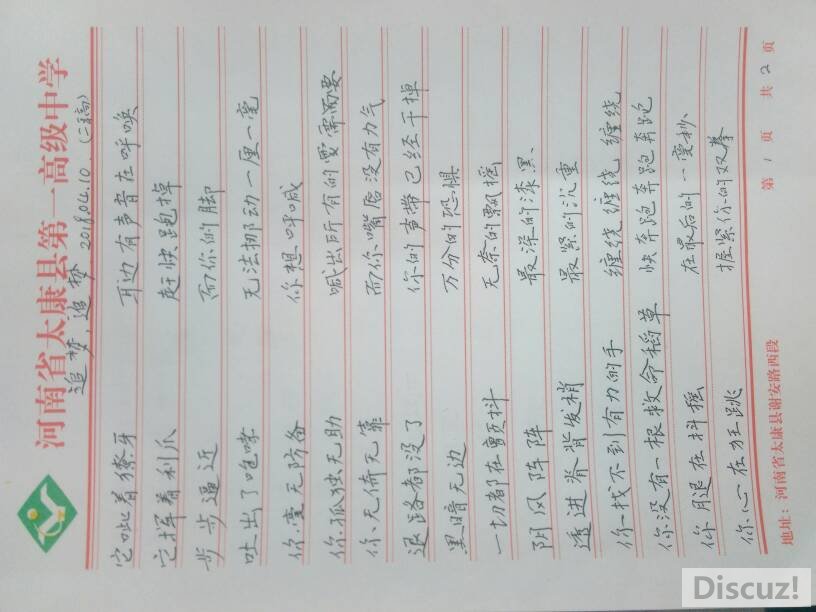 河南省太康县第一高级中学
追梦,追梦 2018.04.10.(二高)
它呲着獠牙 耳边有声音在呼唤
它挥着利爪 赶快跑掉
步步逼近 而你的脚
吐出了咆哮 无法挪动一厘一毫
你,毫无防备 你想呼喊
你,孤独无助 喊出所有的要需而要
你、无倚无靠 而你嘴唇没有力气
退路都没了 你的声带已经干掉
黑暗无边 万分的恐惧
一切都在颤抖 无奈的飘摇
阴风阵阵 最深的漆黑
透进脊背发梢 最紧的沉重
你找不到有力的手 缠绕缠绕缠绕
你没有一根救命稻草 快奔跑奔跑奔跑
你腿在抖摇 在最后的一毫秒
你心在狂跳 握紧你的双拳
地址:河南省太康县谢安路西段 第1页 共2页
Discuz!